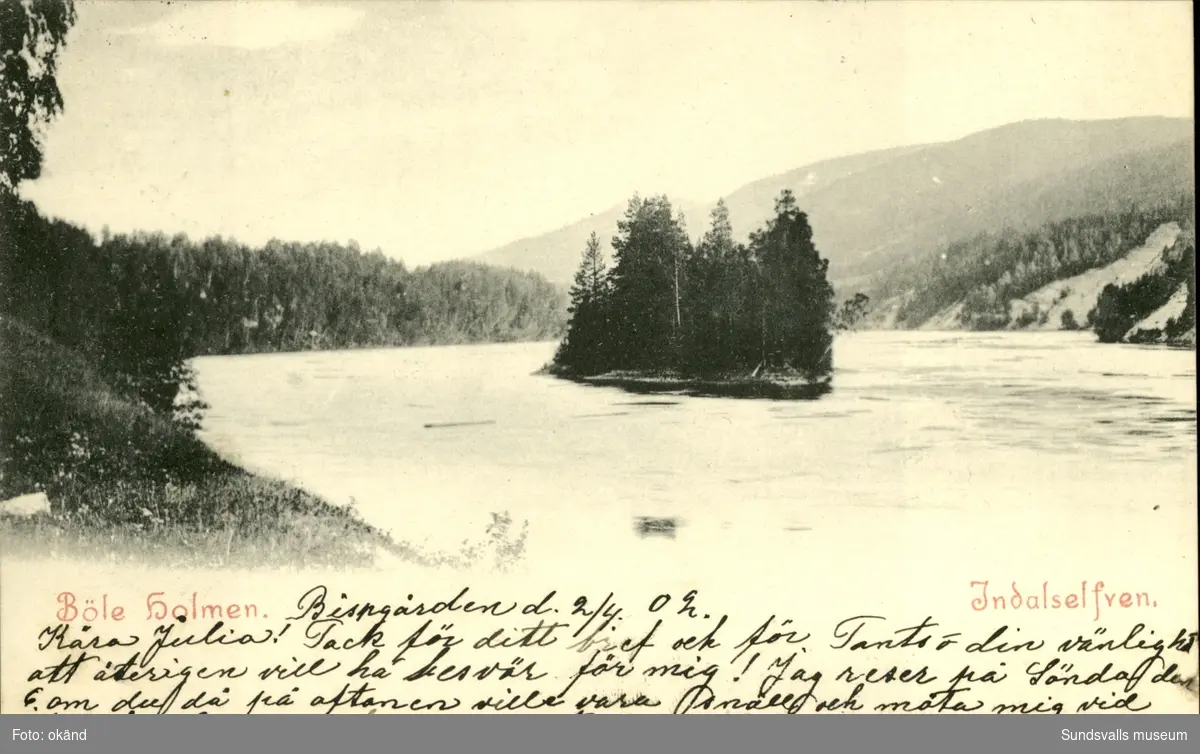 Böle Holmen.
Indalselfven.
Bispgården d. 2/4 02.
Kära Julia! Tack för ditt bref och för Tants o din vänlighet
att återigen vill ha besvär för mig! Jag reser på Söndag den
6. om du då på aftonen ville vara snäll och möta mig vid
Foto: okänd
Sundsvalls museum